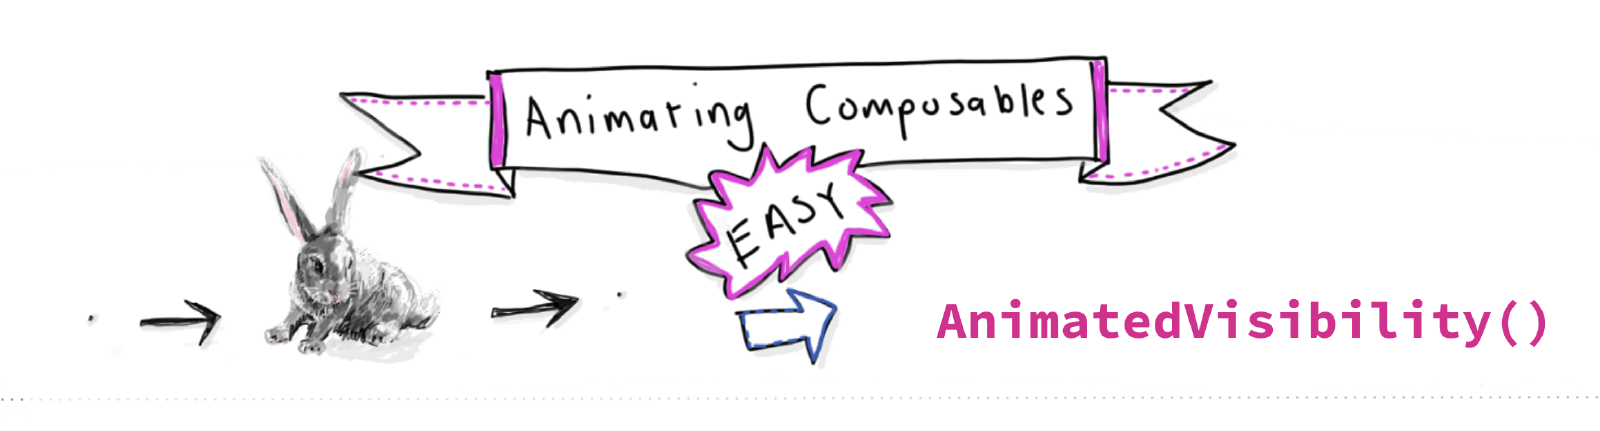 Animating Composables
EASY
AnimatedVisibility()